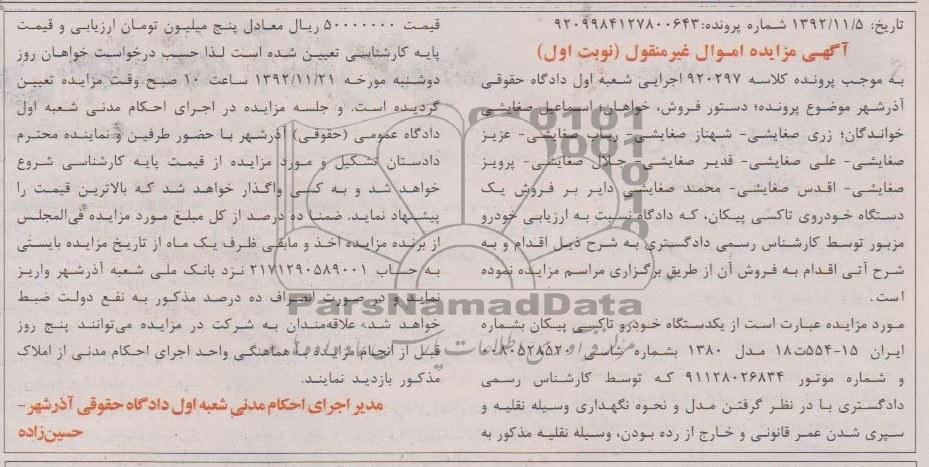 تاریخ: ۱۳۹۲/۱۱/۵ شماره پرونده: ۹۲۰۹۹۸۴۱۲۷۸۰۰۶۴۳
آگهی مزایده اموال غیرمنقول (نوبت اول)
به موجب پرونده کلاسه ۹۲۰۲۹۷ اجرایی شعبه اول دادگاه حقوقی
آذرشهر موضوع پرونده؛ دستور فروش، خواهان؛ اسماعیل صغایشی
خواندگان؛ زری صغایشی- شهناز صغایشی- رباب صغایشی- عزیز
صغایشی- علی صغایشی- قدیر صغایشی- جلال صغایشی- پرویز
صغایشی- اقدس صغایشی- محمد صغایشی دایر بر فروش یک
دستگاه خودروی تاکسی پیکان، که دادگاه نسبت به ارزیابی خودرو
مزبور توسط کارشناس رسمی دادگستری به شرح ذیل اقدام و به
شرح آتی اقدام به فروش آن از طریق برگزاری مراسم مزایده نموده
است.
مورد مزایده عبارت است از یکدستگاه خودرو تاکسی پیکان بشماره
ایران ۱۵-۵۵۴ت۱۸ مدل ۱۳۸۰ بشماره شاسی ۰۰۸۰۵۲۸۵۲۰
و شماره موتور ۹۱۱۲۸۰۲۶۸۳۴ که توسط کارشناس رسمی
دادگستری با در نظر گرفتن مدل و نحوه نگهداری وسیله نقلیه و
سپری شدن عمر قانونی و خارج از رده بودن، وسیله نقلیه مذکور به
قیمت ۵۰۰۰۰۰۰۰ ریال معادل پنج میلیون تومان ارزیابی و قیمت
پایه کارشناسی تعیین شده است لذا حسب درخواست خواهان روز
دوشنبه مورخه ۱۳۹۲/۱۱/۲۱ ساعت ۱۰ صبح وقت مزایده تعیین
گردیده است. و جلسه مزایده در اجرای احکام مدنی شعبه اول
دادگاه عمومی (حقوقی) آذرشهر با حضور طرفین و نماینده محترم
دادستان تشکیل و مورد مزایده از قیمت پایه کارشناسی شروع
خواهد شد و به کسی واگذار خواهد شد که بالاترین قیمت را
پیشنهاد نماید. ضمنا ده درصد از کل مبلغ مورد مزایده فی‌المجلس
از برنده مزایده اخذ و مابقی ظرف یک ماه از تاریخ مزایده بایستی
به حساب ۲۱۷۱۲۹۰۵۸۹۰۰۱ نزد بانک ملی شعبه آذرشهر واریز
نماید و در صورت انصراف ده درصد مذکور به نفع دولت ضبط
خواهد شد. علاقه‌مندان به شرکت در مزایده می‌توانند پنج روز
قبل از انجام مزایده با هماهنگی واحد اجرای احکام مدنی از املاک
مذکور بازدید نمایند.
مدیر اجرای احکام مدنی شعبه اول دادگاه حقوقی آذرشهر-
حسین‌زاده
ParsNamadData